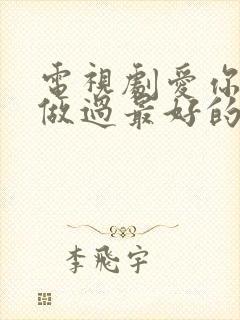 電視劇愛你
做過最好的
李飛宇